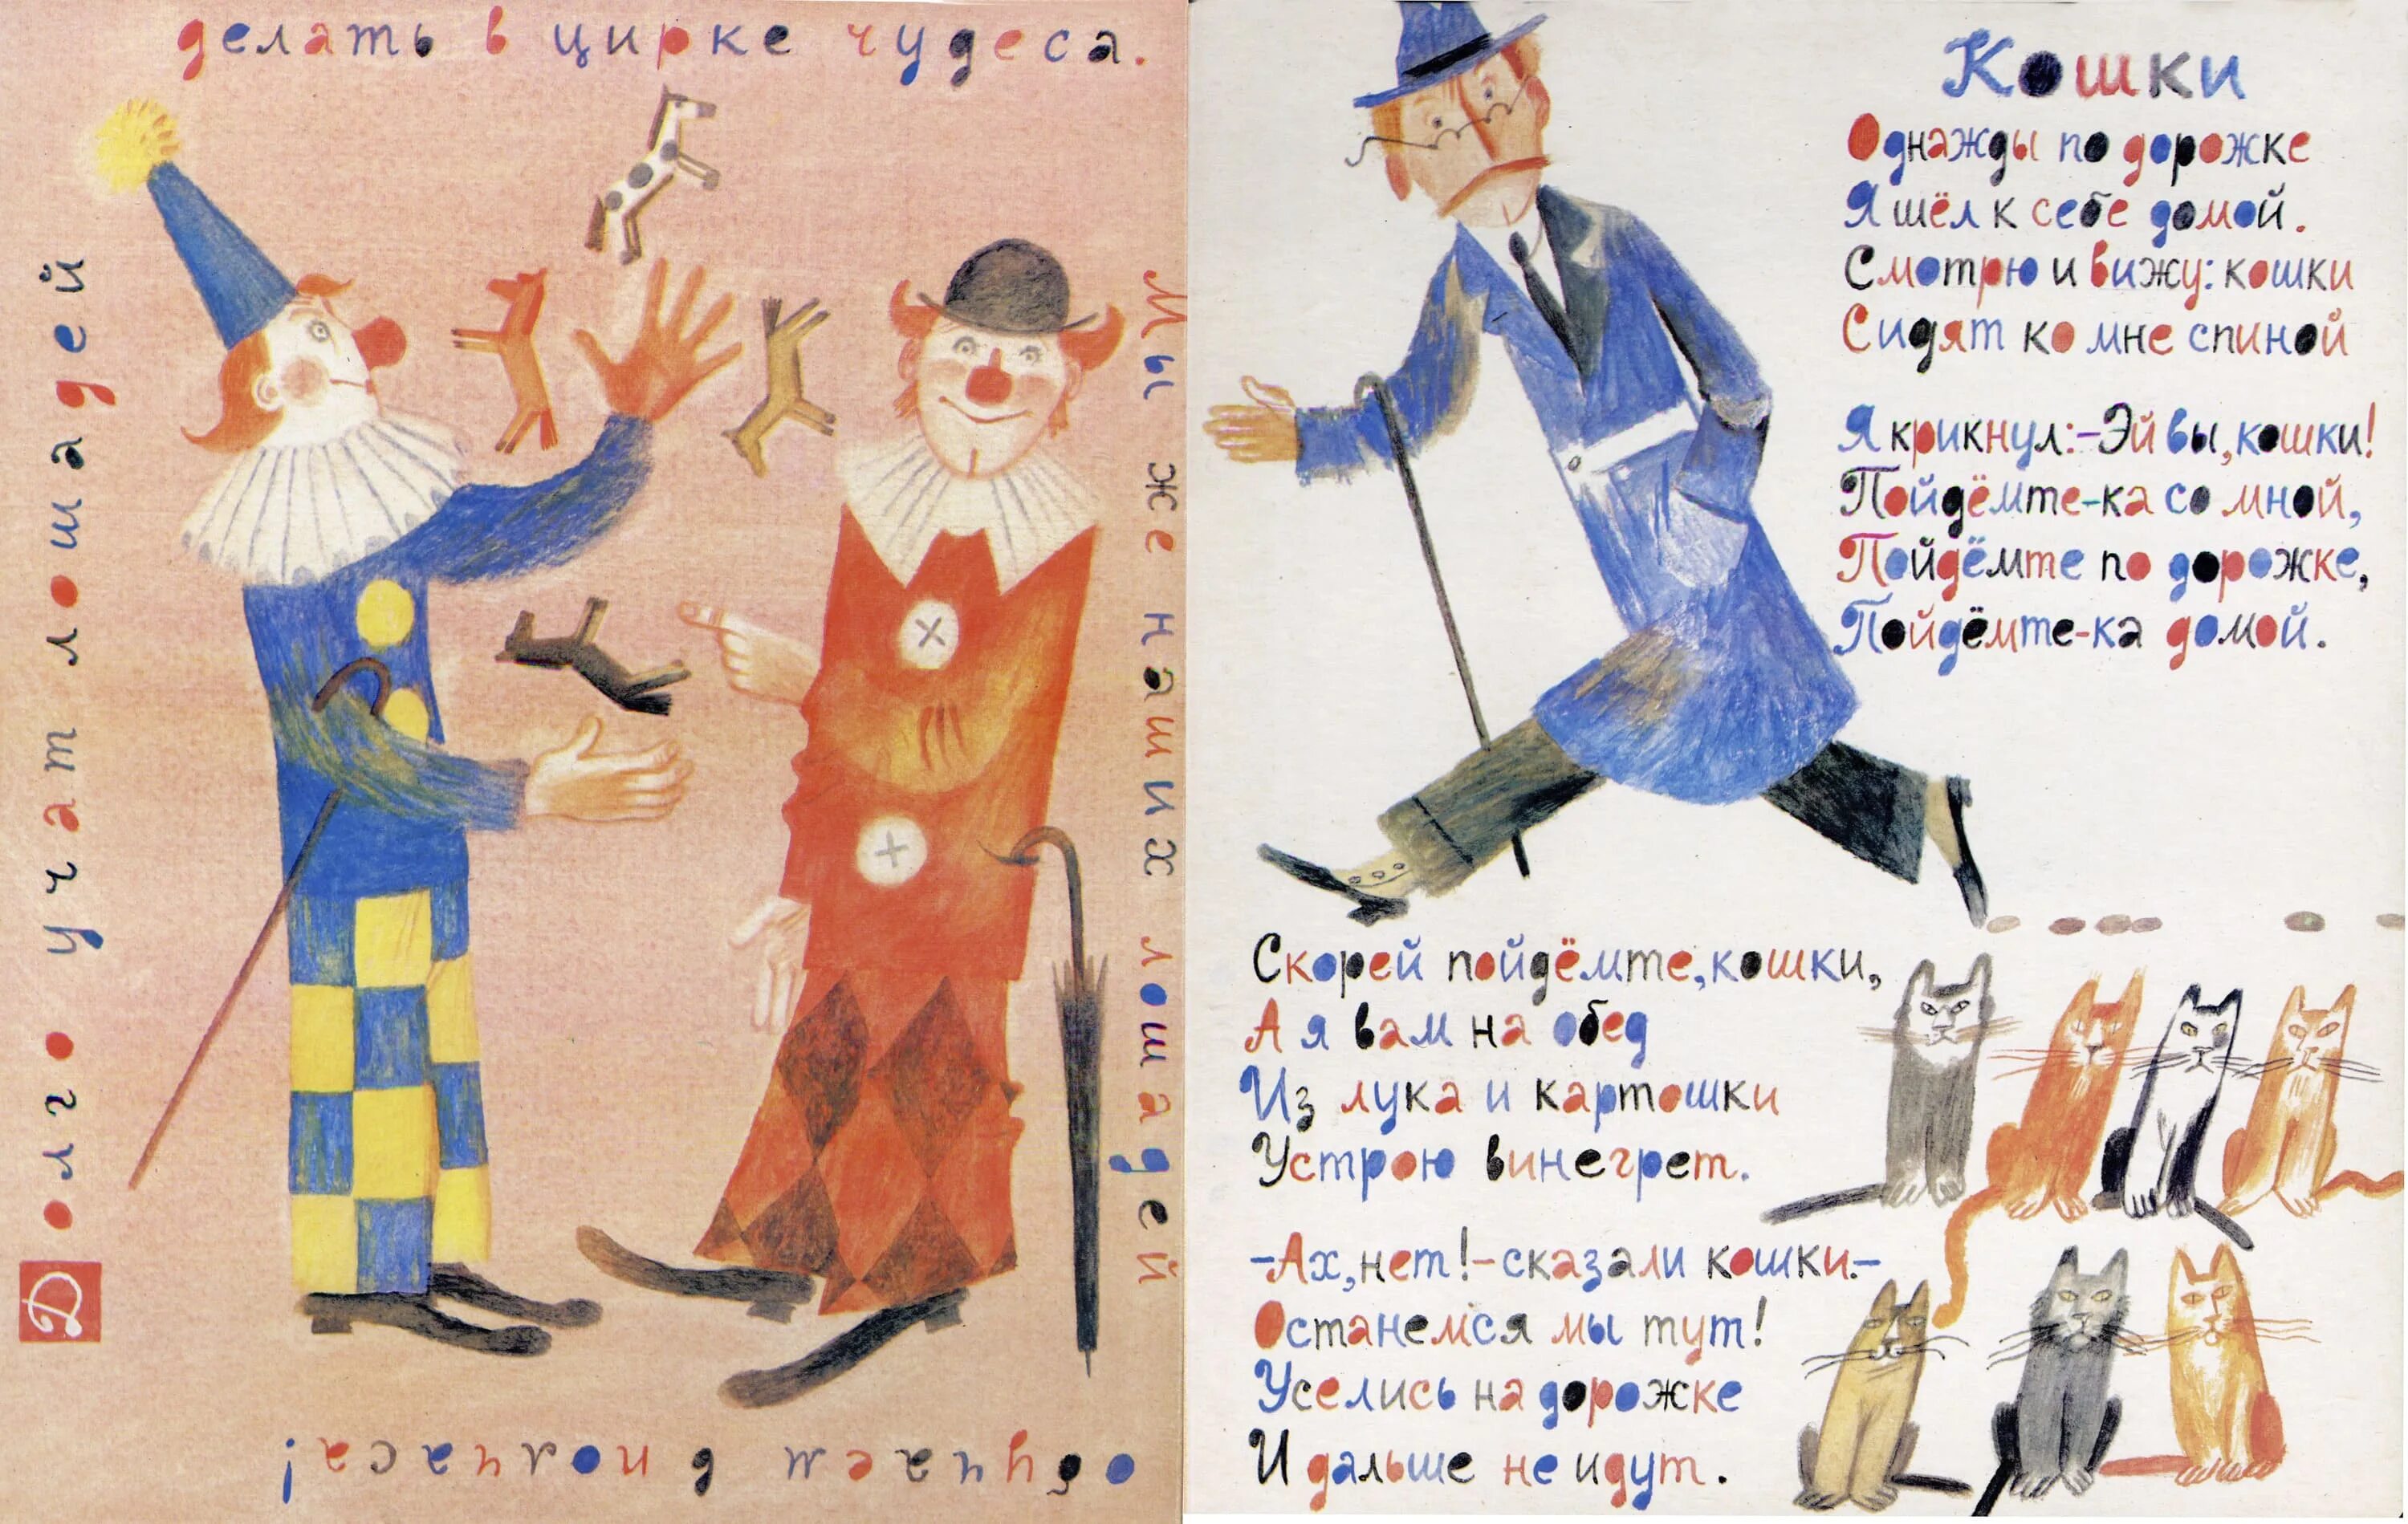 Долго учат лошадей
делать в цирке чудеса.
Мы же наших лошадей
обучаем в полчаса!
Кошки
Однажды по дорожке
Я шёл к себе домой.
Смотрю и вижу: кошки
Сидят ко мне спиной
Я крикнул:-Эй вы, кошки!
Пойдёмте-ка со мной,
Пойдёмте по дорожке,
Пойдёмте-ка домой.
Скорей пойдёмте, кошки,
А я вам на обед
Из лука и картошки
Устрою винегрет.
-Ах, нет!-сказали кошки.-
Останемся мы тут!
Уселись на дорожке
И дальше не идут.